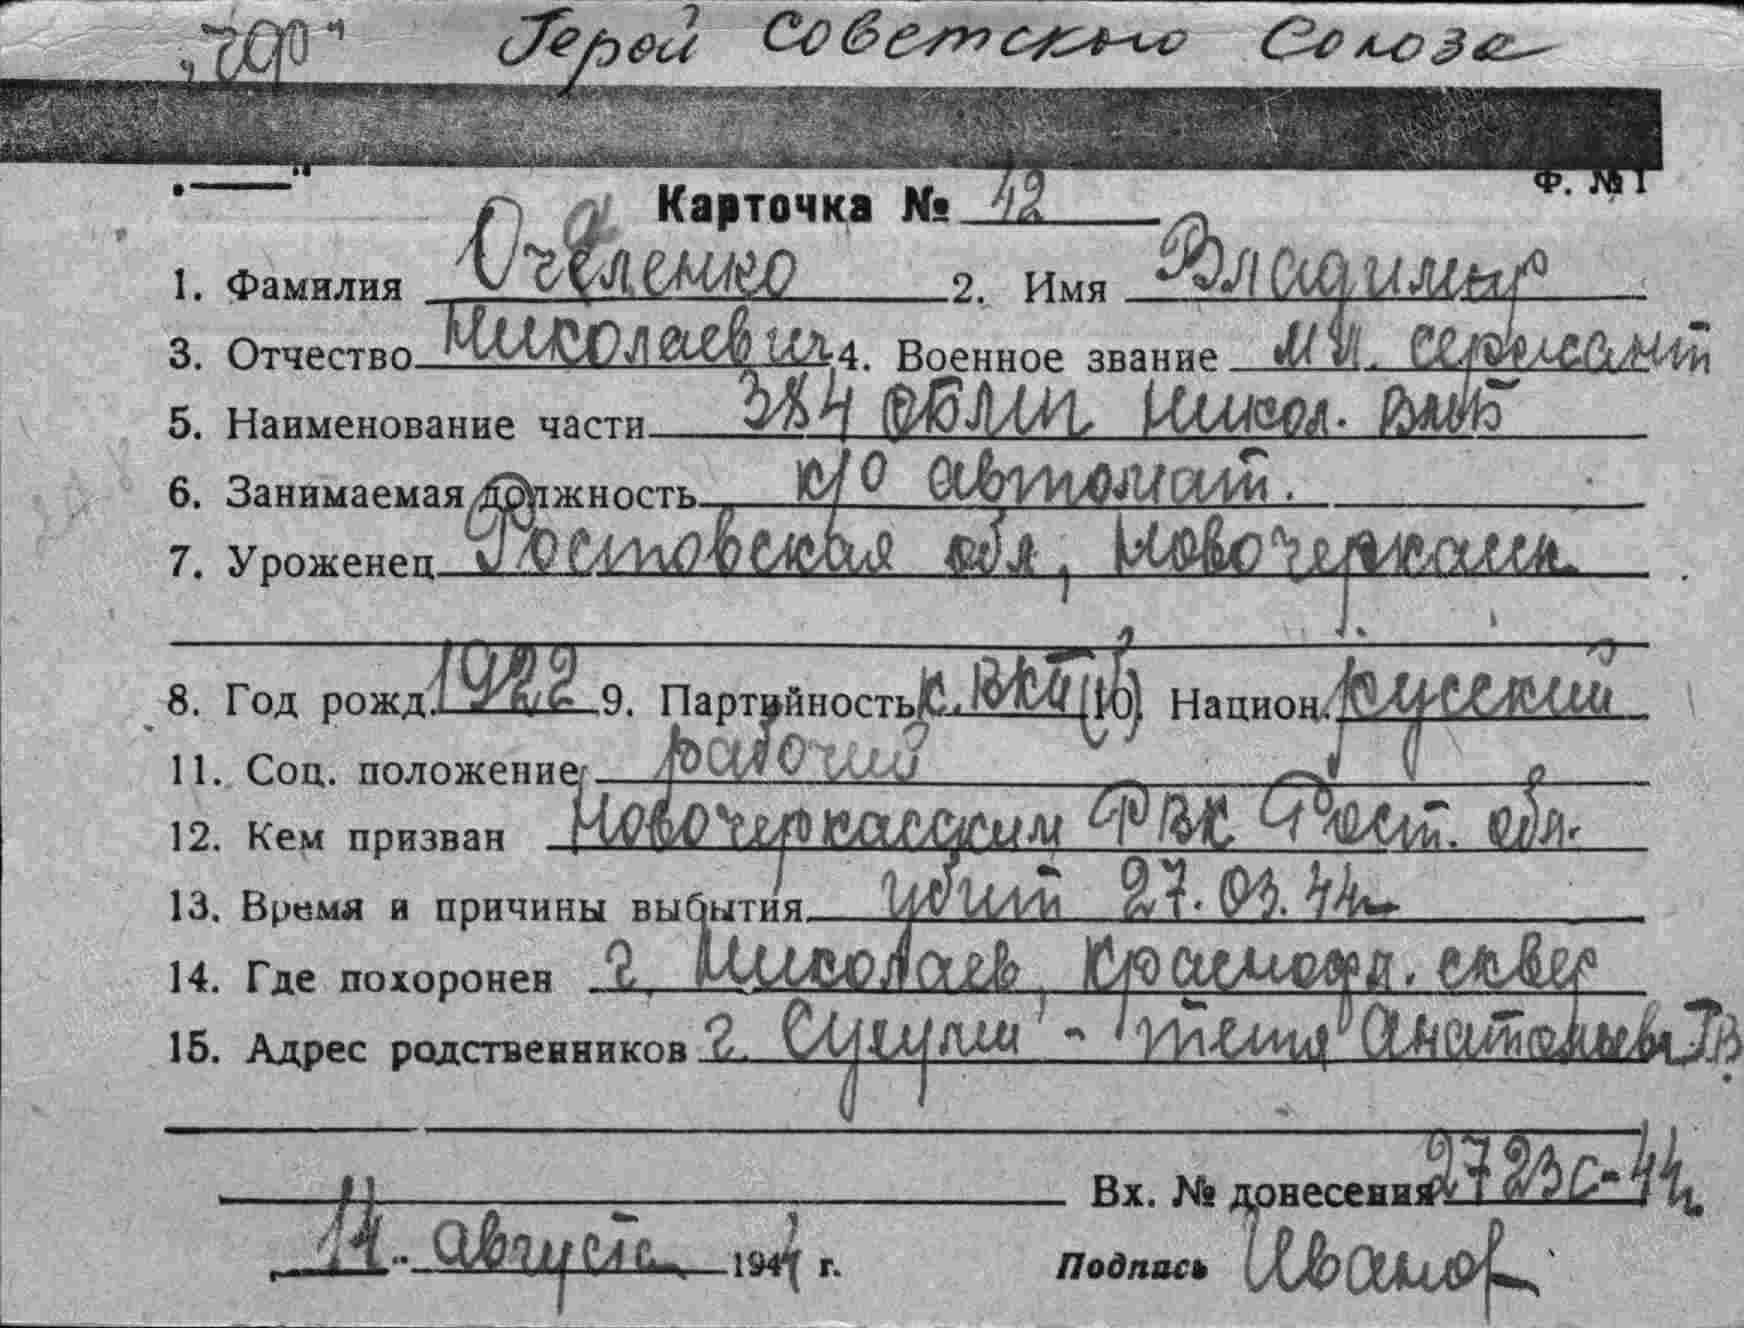 „чф" Герой Советского Союза
Ф. № 1
Карточка № 42
а
1. Фамилия Очеленко 2. Имя Владимир
3. Отчество Николаевич 4. Военное звание мл. сержант
5. Наименование части 384 ОБМП Никол. ВМБ
6. Занимаемая должность к/о автомат.
7. Уроженец Ростовская обл, Новочеркасск
8. Год рожд. 1922 9. Партийность к. ВКП(б) 10. Национ. русский
11. Соц. положение рабочий
12. Кем призван Новочеркасским РВК Рост. обл.
13. Время и причины выбытия убит 27.03.44г
14. Где похоронен г. Николаев, Краснофл. сквер
15. Адрес родственников г. Сухуми - тетя Анатольева Т В.
Вх. № донесения 2723с-44г.
14 августа 1944 г. Подпись Иванов